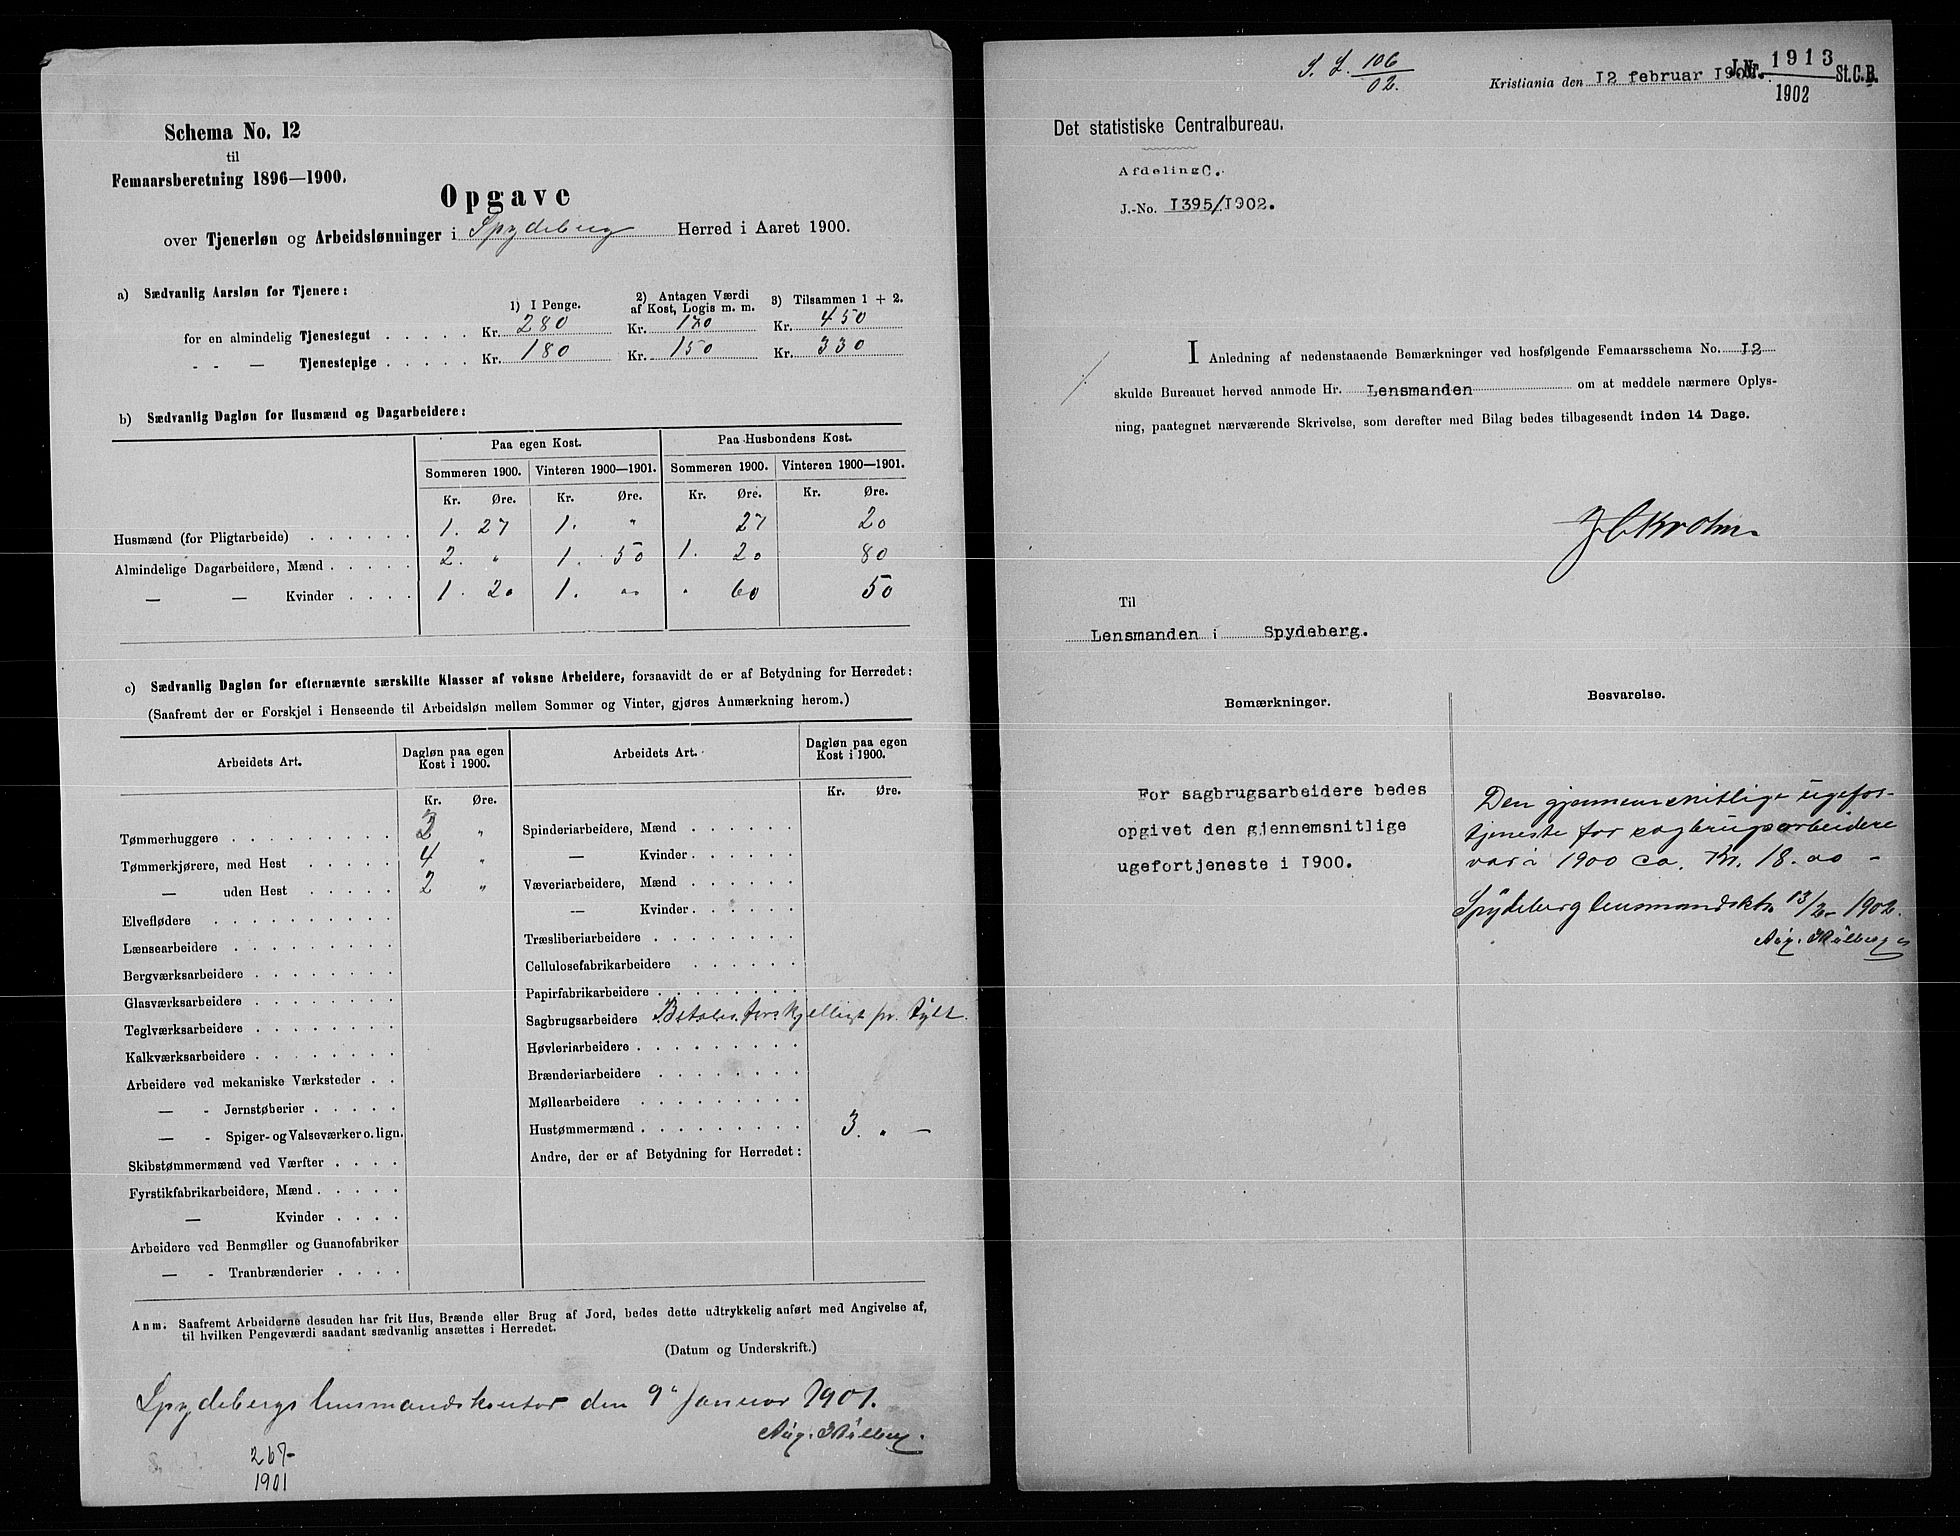 Schema No. 12
til
Femaarsberetning 1896—1900.
Opgave
over Tjenerløn og Arbeidslønninger i Spydeberg Herred i Aaret 1900.
a) Sædvanlig Aarsløn for Tjenere:
1) I Penge. 2) Antagen Værdi af Kost, Logis m. m. 3) Tilsammen 1 + 2.
for en almindelig Tjenestegut . . . . . Kr. 280 Kr. 170 Kr. 450
- - — Tjenestepige . . . . . Kr. 180 Kr. 150 Kr. 330
b) Sædvanlig Dagløn for Husmænd og Dagarbeidere:
Paa egen Kost. Paa Husbondens Kost.
Sommeren 1900. Vinteren 1900—1901. Sommeren 1900. Vinteren 1900—1901.
Kr. Øre. Kr. Øre. Kr. Øre. Kr. Øre.
Husmænd (for Pligtarbeide) . . . . . . 1. 27 1. " 27 20
Almindelige Dagarbeidere, Mænd . . . . . 2. " 1. 50 1. 20 80
— — Kvinder . . . . 1. 20 1. 00 " 60 50
c) Sædvanlig Dagløn for efternævnte særskilte Klasser af voksne Arbeidere, forsaavidt de er af Betydning for Herredet:
(Saafremt der er Forskjel i Henseende til Arbeidsløn mellem Sommer og Vinter, gjøres Anmærkning herom.)
Arbeidets Art. Dagløn paa egen Kost i 1900.
Kr. Øre.
Tømmerhuggere . . . . . . . . . 2 "
Tømmerkjørere, med Hest . . . . . 4 "
— uden Hest . . . . . 2 "
Elveflødere . . . . . . . . . .
Lænsearbeidere . . . . . . . . .
Bergværksarbeidere . . . . . . . .
Glasværksarbeidere . . . . . . . .
Teglværksarbeidere . . . . . . . .
Kalkværksarbeidere . . . . . . . .
Arbeidere ved mekaniske Værksteder . .
— - Jernstøberier . . . . .
— - Spiger- og Valseværker o. lign.
Skibstømmermænd ved Værfter . . . .
Fyrstikfabrikarbeidere, Mænd . . . . .
— Kvinder . . . .
Arbeidere ved Benmøller og Guanofabriker
— - Tranbrænderier . . . .
Arbeidets Art. Dagløn paa egen Kost i 1900.
Kr. Øre.
Spinderiarbeidere, Mænd . . . . . .
— Kvinder . . . . . .
Væveriarbeidere, Mænd . . . . . .
— Kvinder . . . . . .
Træsliberiarbeidere . . . . . . . .
Cellulosefabrikarbeidere . . . . . .
Papirfabrikarbeidere . . . . . . . .
Sagbrugsarbeidere Betales forskjelligt pr. Tylt.
Høvleriarbeidere . . . . . . . . .
Brænderiarbeidere . . . . . . . .
Møllearbeidere . . . . . . . . .
Hustømmermænd . . . . . . . . . 3. " —
Andre, der er af Betydning for Herredet:
Anm. Saafremt Arbeiderne desuden har frit Hus, Brænde eller Brug af Jord, bedes dette udtrykkelig anført med Angivelse af,
til hvilken Pengeværdi saadant sædvanlig ansættes i Herredet.
(Datum og Underskrift.)
Spydebergs lensmandskontor den 9" Januar 1901.
Aug.
267
1901
S. L. 106/02.
Kristiania den 12 februar 1902.
J.Nr. 1913/1902 St.C.B.
Det statistiske Centralbureau.
Afdeling C.
J.-No. 1395/1902.
I Anledning af nedenstaaende Bemærkninger ved hosfølgende Femaarsschema No. 12
skulde Bureauet herved anmode Hr. Lensmanden om at meddele nærmere Oplys-
ning, paategnet nærværende Skrivelse, som derefter med Bilag bedes tilbagesendt inden 14 Dage.
Krohn.
Til
Lensmanden i Spydeberg.
Bemærkninger.
For sagbrugsarbeidere bedes
opgivet den gjennemsnitlige
ugefortjeneste i 1900.
Besvarelse.
Den gjennemsnitlige ugefor-
tjeneste for sagbrugsarbeidere
var i 1900 ca. Kr. 18.00 -
Spydeberg lensmandsktr. 13/2 - 1902.
Aug.